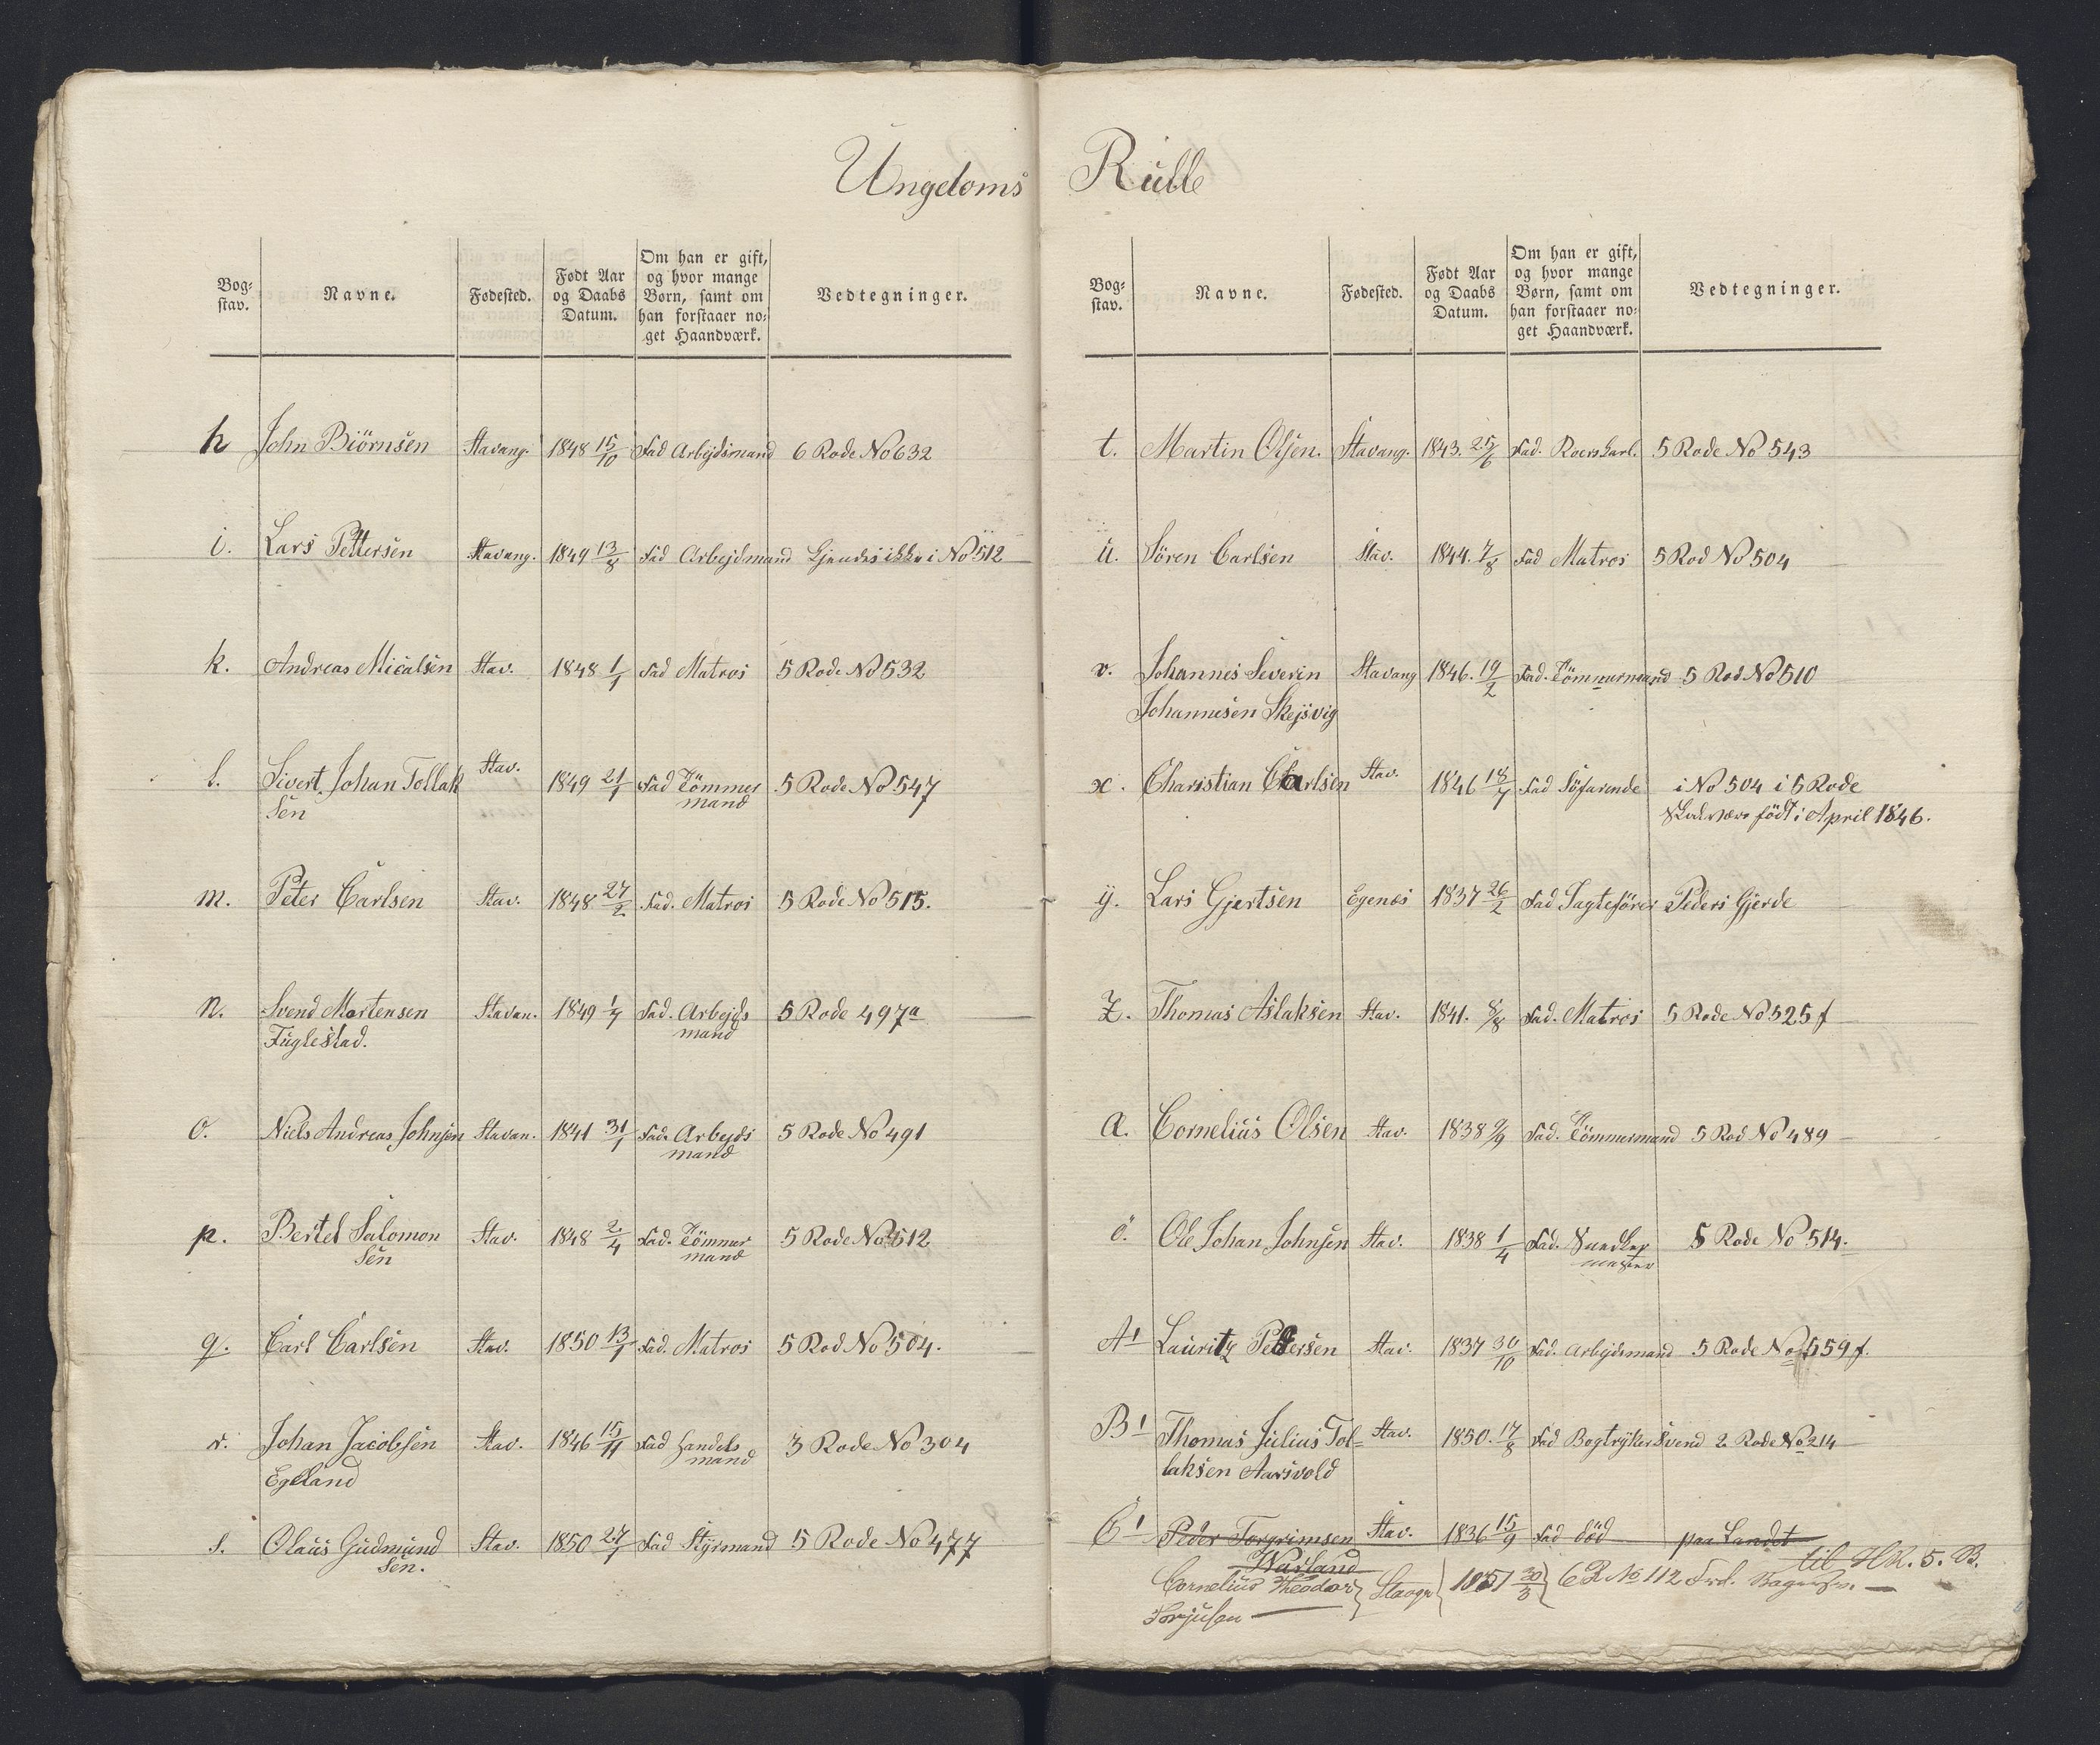 Ungdoms Rulle
Bog-
stav.
Navne.
Fødested.
Født Aar
og Daabs
Datum.
Om han er gift,
og hvor mange
Børn, samt om
han forstaaer no-
get Haandværk.
Vedtegninger.
h John Biörnsen Stavang. 1848 15/10 Fad Arbejdsmand 6 Rode No 632
i. Lars Pettersen Stavang. 1849 13/8 Fad Arbejdsmand Gjendes ikke i No 512
k. Andreas Micalsen Stav. 1848 1/1 Fad Matros 5 Rode No 532
l. Sivert Johan Tollak Stav. 1849 21/1 Fad Tömmer 5 Rode No 547
sen mand
m. Peter Carlsen Stav. 1848 27/2 Fad. Matros 5 Rode No 515.
n. Svend Mortensen Stavan. 1849 1/7 Fad. Arbejds 5 Rode 497a
Fuglestad. mand
o. Niels Andreas Johnsen Stavan. 1841 31/1 Fad. Arbejds 5 Rode No 491
mand
p. Bertel Salomon Stav. 1848 2/4 Fad. Tömmer 5 Rode No 512
sen mand
q. Carl Carlsen Stav. 1850 13/1 Fad. Matros 5 Rod No 504.
r. Johan Jacobsen Stav. 1846 15/11 Fad Handels 3 Rode No 304
Egeland mand
s. Olaus Gudmund Stav. 1850 27/1 Fad Styrmand 5 Rode No 477
sen.
Bog-
stav.
Navne.
Fødested.
Født Aar
og Daabs
Datum.
Om han er gift,
og hvor mange
Børn, samt om
han forstaaer no-
get Haandværk.
Vedtegninger.
t. Martin Olsen. Stavang. 1843. 25/6 Fad. Roerskarl. 5 Rode No 543
u. Sören Carlsen Stav. 1844. 7/8 Fad Matros 5 Rod No 504
v. Johannes Severin Stavang 1846. 19/2 Fad. Tömmermand 5 Rod. No 510
Johannesen Skejsvig
x. Charistian Charlsen Stav. 1846 18/7 Fad Söfarende i No 504 i 5 Rode
skal være født i April 1846.
y. Lars Gjertsen Egenes 1837 26/2 Fad Jagtefören Peders Gjerde
Z. Thomas Aslaksen Stav. 1841. 8/8 Fad. Matros 5 Rode No 525 f
Æ. Cornelius Olsen Stav. 1838 9/9 Fad. Tömmermand 5 Rod No 489
ö. Ole Johan Johnsen Stav. 1838 1/4 Fad. 5 Rode No 514.
A1 Lauritz Pedersen Stav. 1837 30/10 Fad. Arbejdsmand 5 Rode No 559 f.
B1 Thomas Julius Tol- Stav. 1850. 17/8 Fad Bogtrykersvend 2 Rode No 214
laksen Aarsvold
C1 Peder Torgrimsen Stav. 1836 15/9 Fad död paa Landet
Warland til HR. 5. B.
Cornelius Theodor Stavgr 1851 30/3 6 R No 112 Fad.
Torjusen